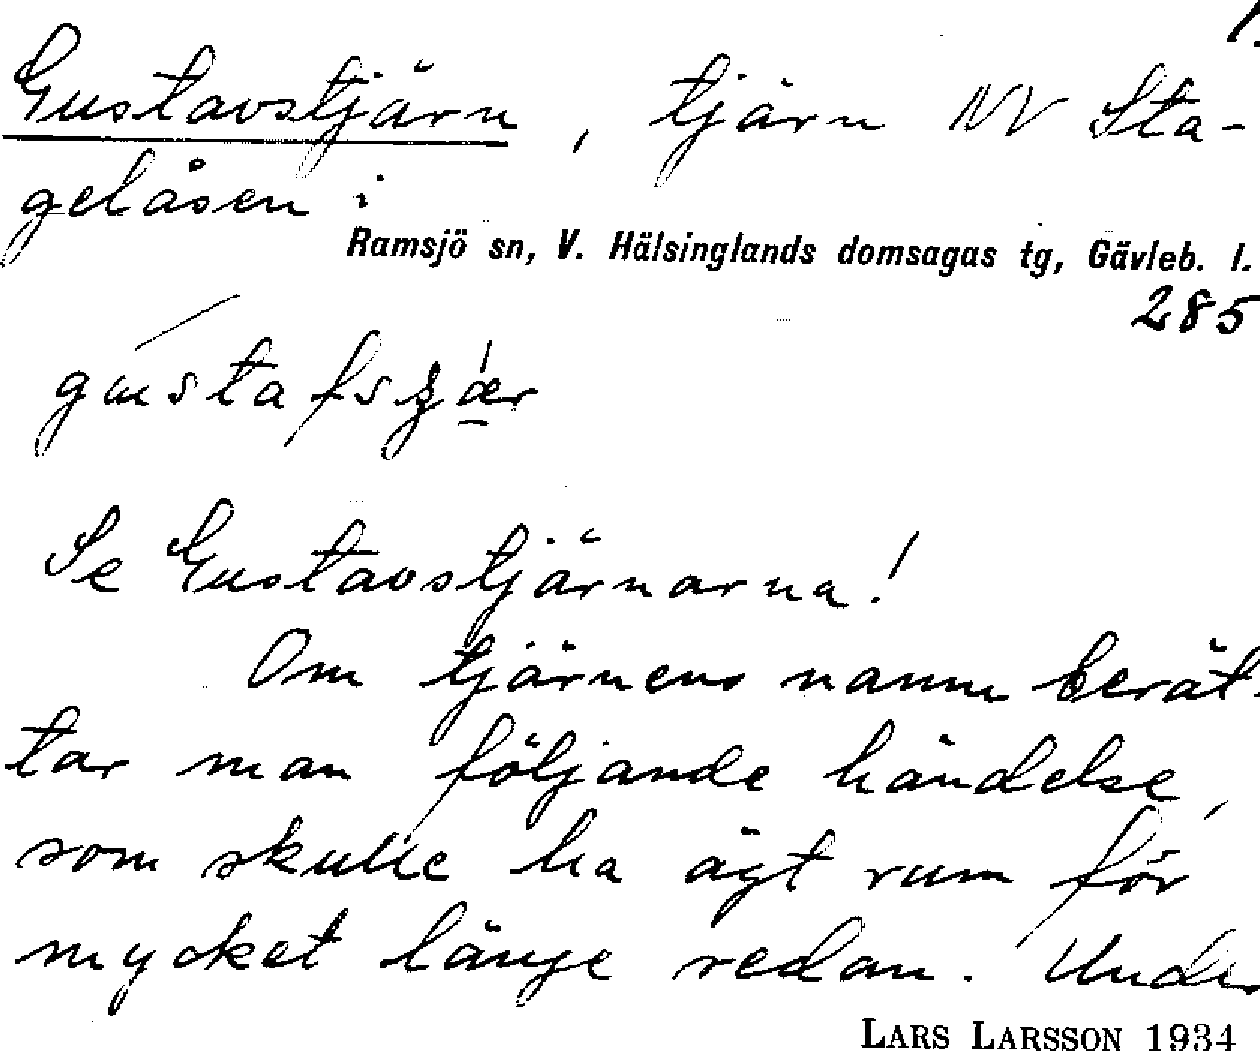 1.
Gustavstjärn, tjärn NV Sta-
gelåsen i
Ramsjö sn, V. Hälsinglands domsagas tg, Gävleb. l.
285
Se Gustavstjärnarna!
Om tjärnens namn berät-
tar man följande händelse,
som skulle ha ägt rum för
mycket länge redan. Under
LARS LARSSON 1934